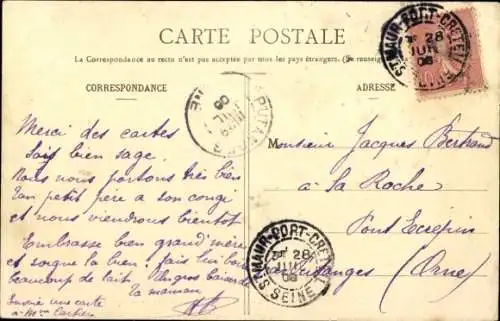 CARTE POSTALE
La Correspondance au recto n'est pas acceptée par tous les pays étrangers. (Se renseigner
CORRESPONDANCE
ADRESSE
Merci des cartes
Sois bien sage.
Nous nous portons très bien
Ton petit père a son congé
et nous viendrons bientôt
Embrasse bien grand'mère
et soigne la bien, fais lui
beaucoup de lait. Un gros
ta maman
une carte
à Mme
Monsieur Jacques Bertrand
à La Roche
Pont Ecrepin
par Putanges (Orne)
ST-MAUR-PORT-CRETEIL
28
JUIL
06
SEINE
ST-MAUR-PORT-CRETEIL
28
JUIL
06
SEINE
PUTANGES
06